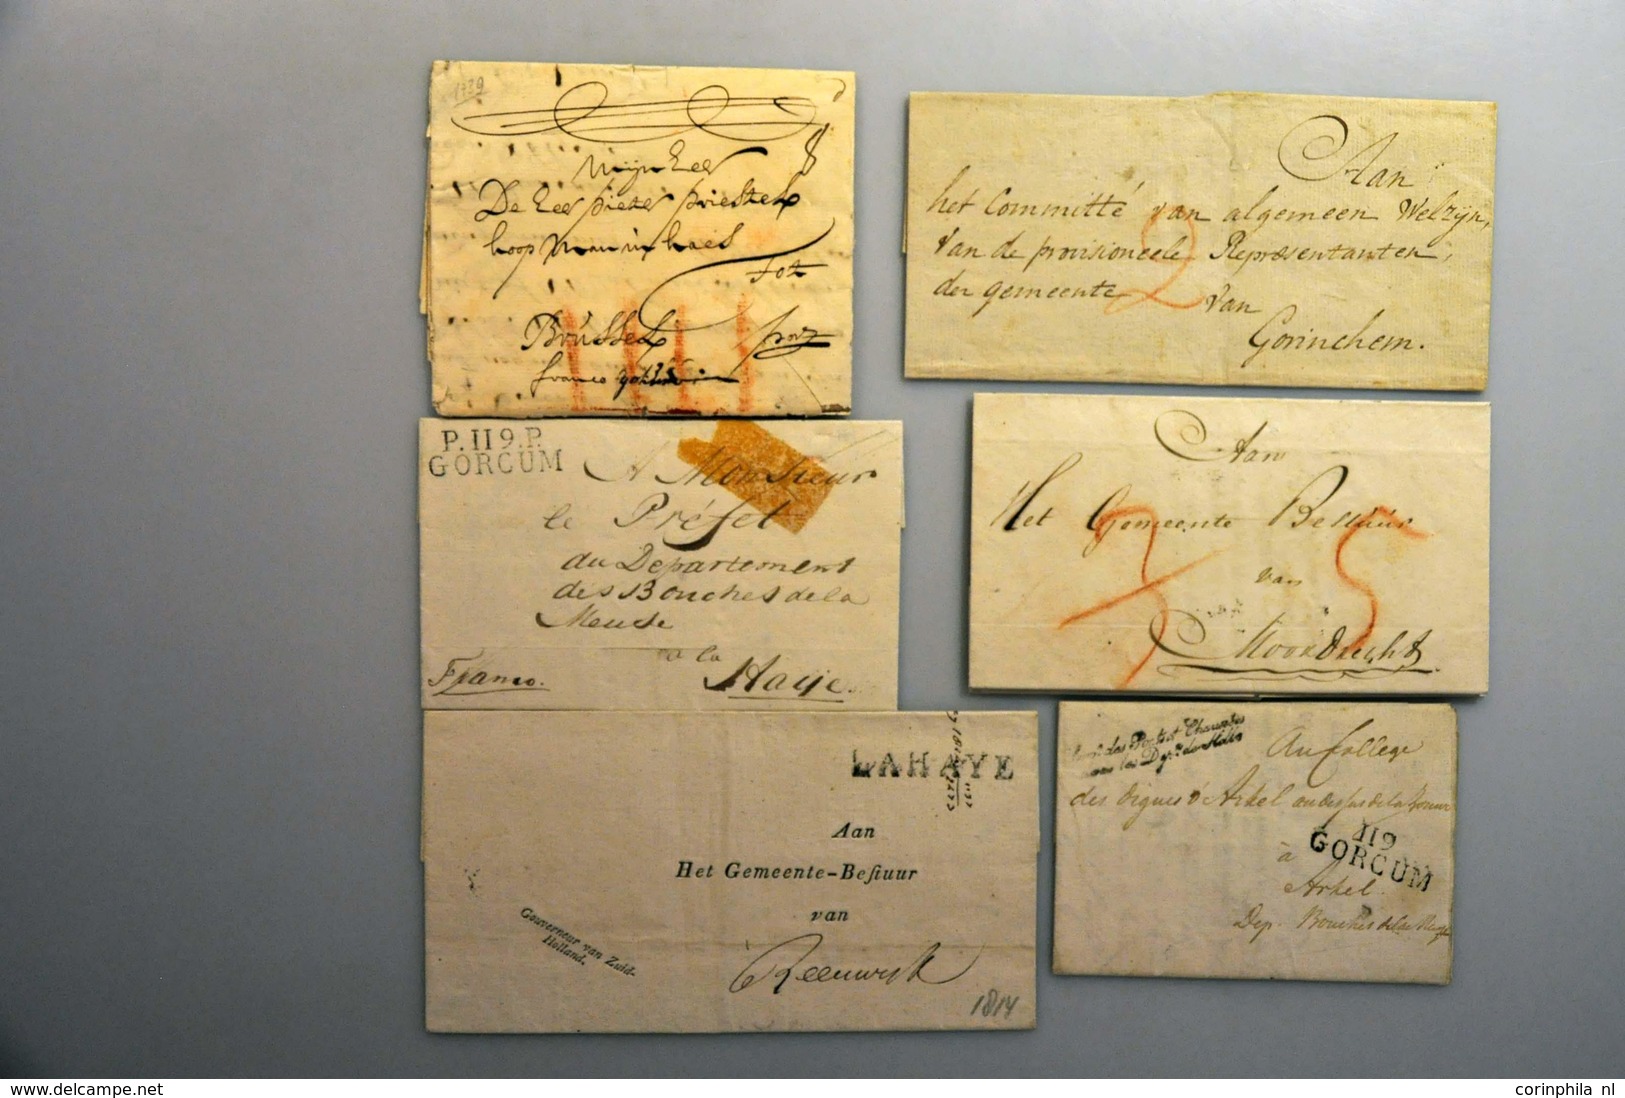 1739
Mijn Heer
De Heer pieter priestel
koopman in kaes
tot
Brussel
port
franco
Aan
het Committé van algemeen Welzijn,
van de provisioneele Representanten,
der gemeente van
2
Gorinchem.
P.119.P.
GORCUM
A Monsieur
le Préfet
du Departement
des Bouches de la
Meuse
a la
Haije
Franco.
Aan
Het Gemeente Bestuur
3 5
van
Moordrecht
LAHAYE
Aan
Het Gemeente-Beſtuur
van
Reeuwyk
Gouverneur van Zuid-
Holland.
1814
des Ponts et Chaussées
Au College
des digues d'Arkel au dessus de la
119
GORCUM
à
Arkel.
Dep. Bouches de la Meuse
www.delcampe.net
corinphila nl